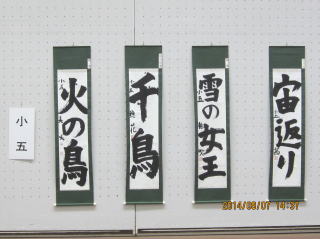 小五
火の鳥
千鳥
雪の女王
宙返り
2014/08/07 14:37